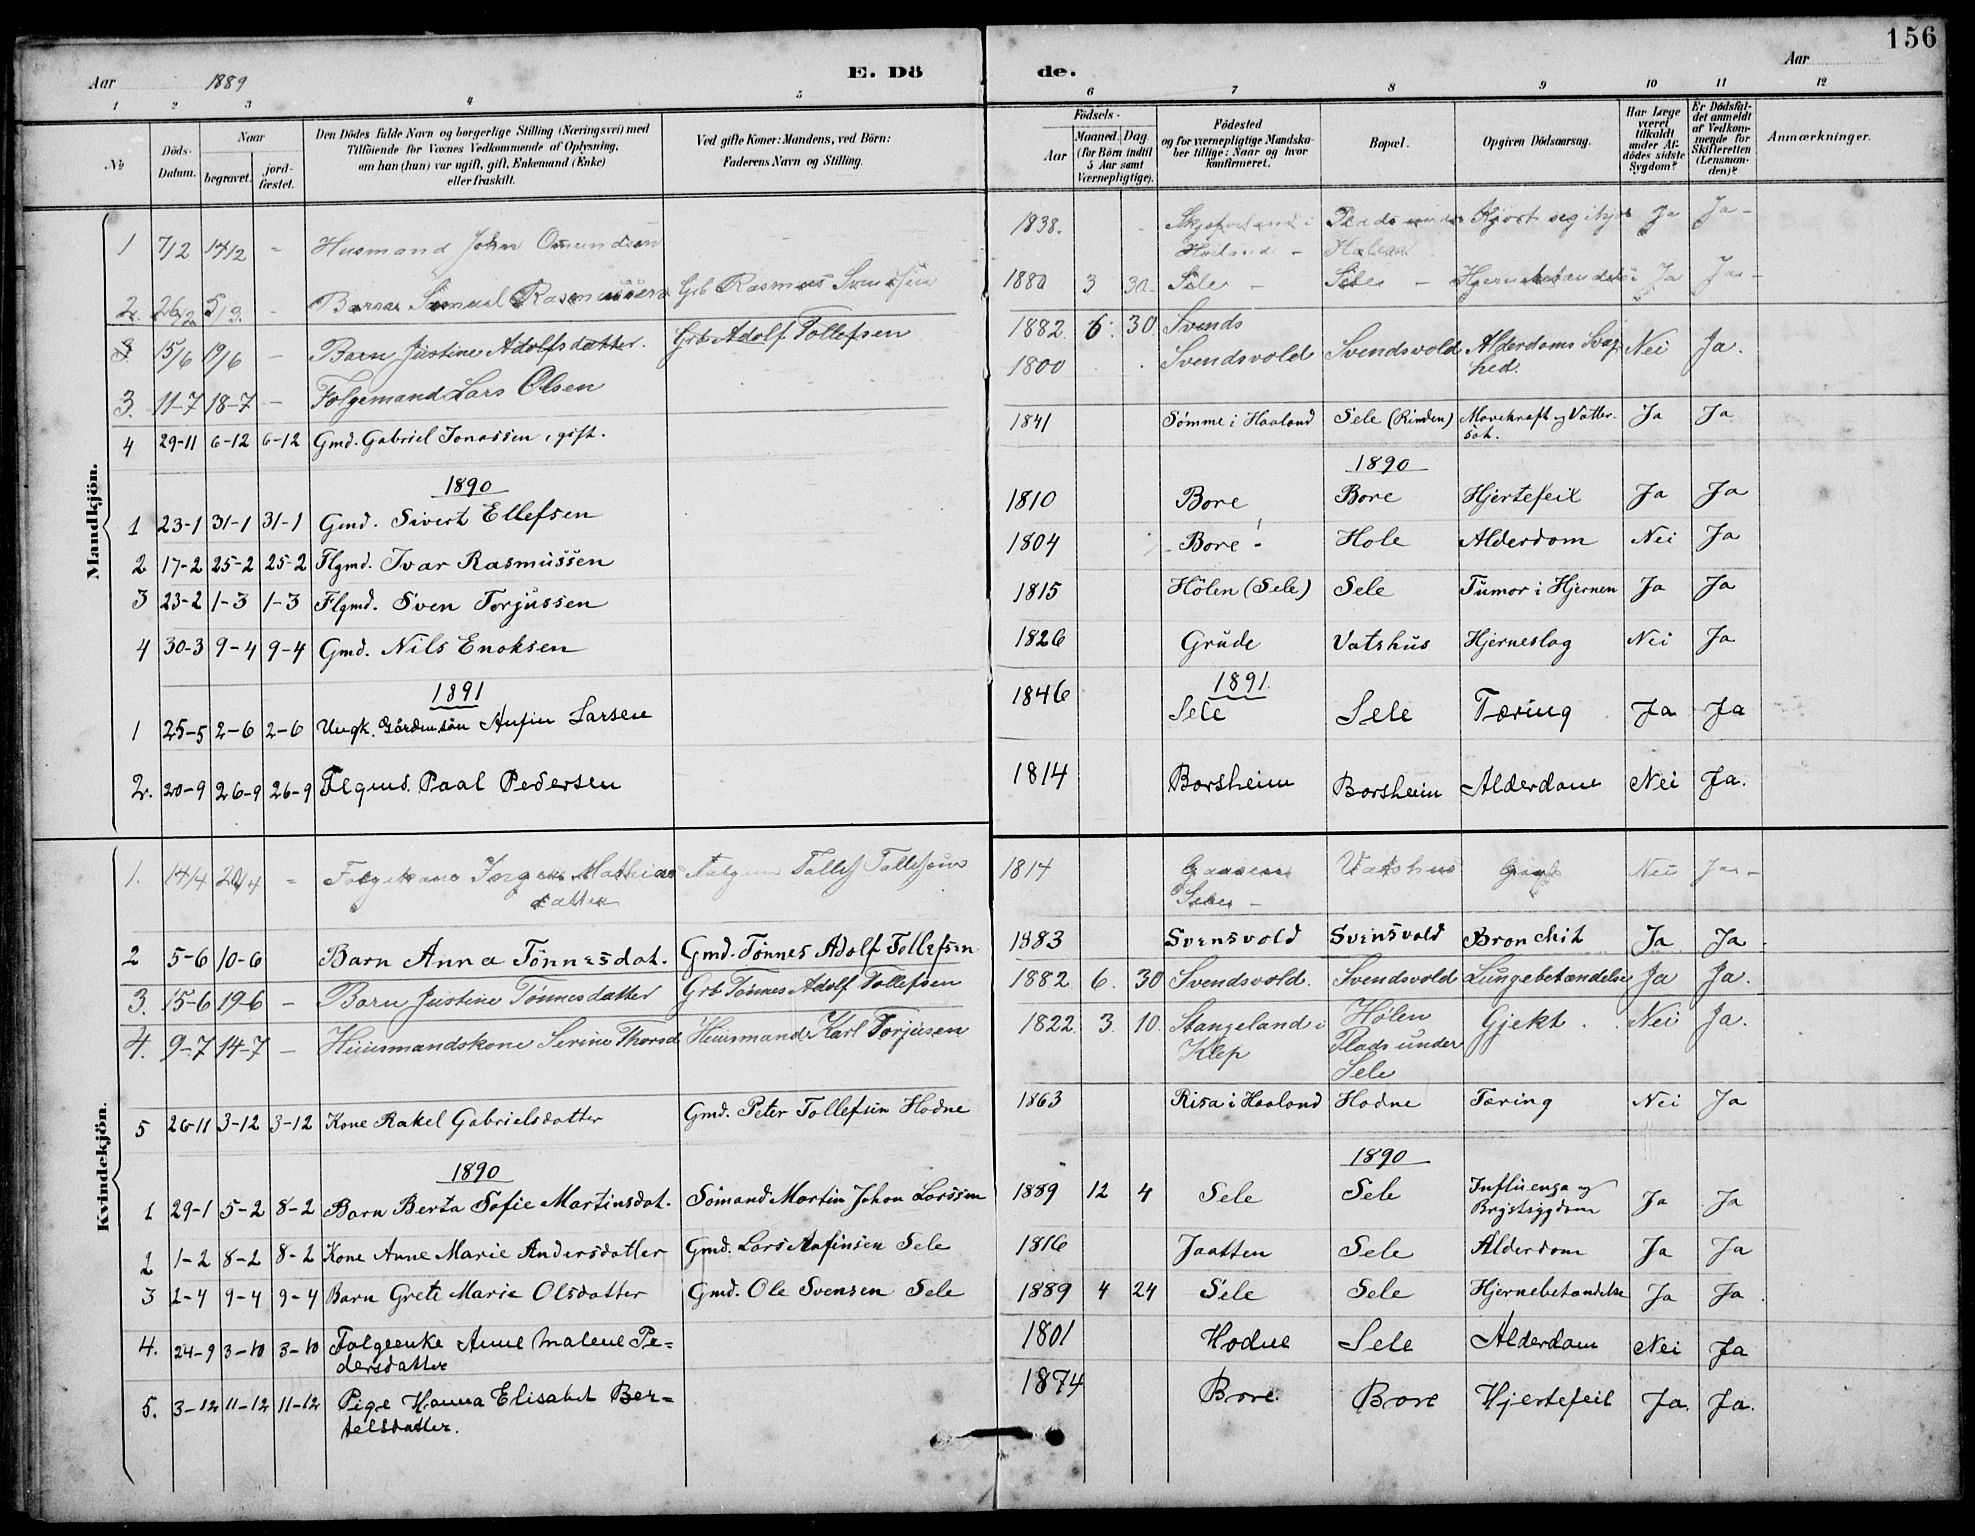 156
Aar 1889 E. Dö de. Aar
1 2 3 4 5 6 7 8 9 10 11 12
No Döds-Datum. Naar begravet. jordfæstet. Den Dödes fulde Navn og borgerlige Stilling (Næringsvei) med Tilföiende for Voxnes Vedkommende af Oplysning, om han (hun) var ugift, gift, Enkemand (Enke) eller fraskilt. Ved gifte Koner: Mandens, ved Börn: Faderens Navn og Stilling. Födsels- Aar Maaned. Dag. (for Börn indtil 5 Aar samt Værnepligtige). Födested og for værnepligtige Mandskaber tillige: Naar og hvor konfirmeret. Bopæl. Opgiven Dödsaarsag. Har Læge været tilkaldt under Afdödes sidste Sygdom? Er Dödsfaldet anmeldt af Vedkommende for Skifteretten (Lensmanden)? Anmærkninger.
Mandkjön.
1 7/2 14/2 - Husmand John Omundsen 1838. Høiland - Plads under Ja Ja -
2. 26/2 5/3. - Samuel Rasmussen Grb Rasmus Svendsen 1880 3 30 Sele - Sele - Ja Ja -
3 15/6 19/6 - Barn Justine Adolfsdatter. Grb Adolf Tollefsen 1882. 6. 30 Svends
3. 11-7 18-7 - Folgemand Lars Olsen 1800 Svendsvold Svendsvold Alderdoms Svaghed. Nei Ja.
4 29-11 6-12 6-12 Gmd. Gabriel Jonassen, gift. 1841 Sømme i Haaland Sele (Rinden) Mavekræft og Vattersot. Ja Ja
1890 1890
1 23-1 31-1 31-1 Gmd. Sivert Ellefsen 1810 Bore Bore Hjertefeil Ja Ja
2 17-2 25-2 25-2 Flgmd. Ivar Rasmussen 1804 Bore - Hole Alderdom Nei Ja
3 23-2 1-3 1-3 Flgmd. Sven Torjussen 1815 Hölen (Sele) Sele Tumor i Hjernen Ja Ja
4 30-3 9-4 9-4 Gmd. Nils Enoksen 1826 Grude Vatshus Hjerneslag Nei Ja
1891 1891.
1 25-5 2-6 2-6 Ungk. Gårdmsön Anfin Larsen 1846 Sele Sele Tæring Ja Ja
2. 20-9 26-9 26-9 Flgmd. Paal Pedersen 1814 Borsheim Borsheim Alderdom Nei Ja.
Kvindekjön.
1. 14/4 - Tollef Tollefsen 1814 Vatshus Gigt Nei Ja -
datter Sele -
2 5-6 10-6 Barn Anna Tønnesdat. Gmd. Tønnes Adolf Tollefsen 1883 Svensvold Svensvold Bronchit Ja Ja.
3. 15-6 19-6 - Barn Justine Tønnesdatter Grb Tønnes Adolf Tollefsen 1882 6. 30 Svendsvold. Svendsvold Lungebetændelse Ja Ja.
4. 9-7 14-7 - Huusmandskone Serine Thorsd Huusmand Karl Torjusen 1822. 3. 10. Stangeland i Klep Hølen Plads under Sele Gjekt. Nei Ja.
5 26-11 3-12 3-12 Kone Rakel Gabrielsdatter Gmd. Peter Tollefsen Hodne 1863 Risa i Haaland Hodne Tæring Nei Ja
1890 1890
1 29-1 5-2 8-2 Barn Berta Sofie Martinsdat. Sömand Martin Johan Larssen 1889 12 4 Sele Sele Influenza og Brystsygdom Ja Ja
2 1-2 8-2 8-2 Kone Anne Marie Andersdatter Gmd. Lars Anfinsen Sele 1816 Jaatten Sele Alderdom Ja Ja
3 2-4 9-4 9-4 Barn Grete Marie Olsdatter Gmd. Ole Svensen Sele 1889 4 24 Sele Sele Hjernebetændelse Ja Ja.
4. 24-9 3-10 3-10 Folgeenke Anne Malene Pe=dersdatter 1801 Hodne Sele Alderdom Nei Ja
5. 3-12 11-12 11-12 Pige Hanna Elisabet Ber=telsdatter. 1874 Bore Bore Hjertefeil Ja. Ja.